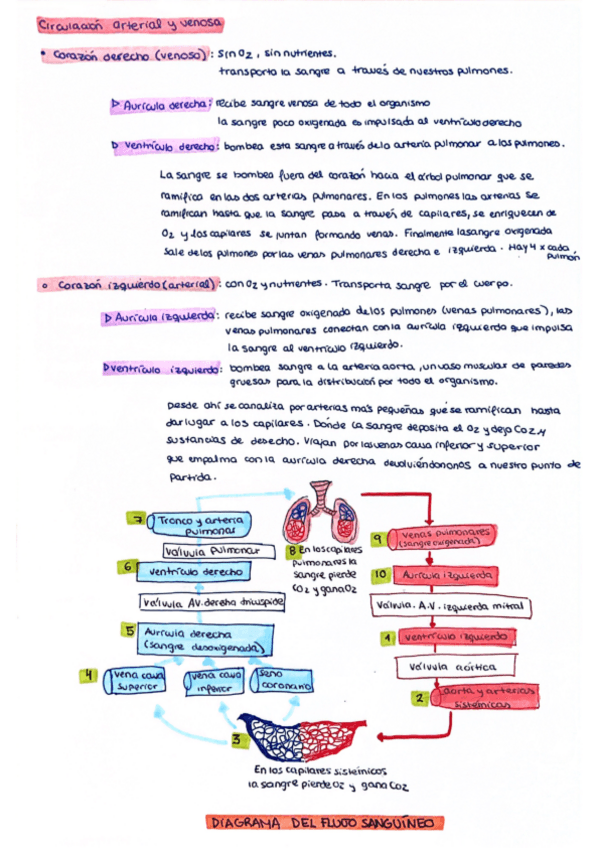 Circulación arterial y venosa
• Corazón derecho (venoso): Sin O2, sin nutrientes.
transporta la sangre a través de nuestros pulmones.
▷ Aurícula derecha: recibe sangre venosa de todo el organismo
la sangre poco oxigenada es impulsada al ventrículo derecho
▷ Ventrículo derecho: bombea esta sangre a través de la arteria pulmonar a los pulmones.
La sangre se bombea fuera del corazón hacia el árbol pulmonar que se
ramifica en las dos arterias pulmonares. En los pulmones las arterias se
ramifican hasta que la sangre pasa a través de capilares, se enriquecen de
O2 y los capilares se juntan formando venas. Finalmente la sangre oxigenada
sale de los pulmones por las venas pulmonares derecha e izquierda. Hay 4 x cada
pulmón
• Corazón izquierdo (arterial): con O2 y nutrientes. Transporta sangre por el cuerpo.
▷ Aurícula izquierda: recibe sangre oxigenada de los pulmones (venas pulmonares), las
venas pulmonares conectan con la aurícula izquierda que impulsa
la sangre al ventrículo izquierdo.
▷ ventrículo izquierdo: bombea sangre a la arteria aorta, un vaso muscular de paredes
gruesas para la distribución por todo el organismo.
Desde ahí se canaliza por arterias más pequeñas que se ramifican hasta
dar lugar a los capilares. Donde la sangre deposita el O2 y deja CO2 y
sustancias de desecho. Viajan por las venas cava inferior y superior
que empalma con la aurícula derecha devolviéndonos a nuestro punto de
partida.
7 Tronco y arteria
pulmonar
Válvula pulmonar
6 ventrículo derecho
Válvula AV. dereha tricuspide
5 Aurícula derecha
(sangre desoxigenada)
4 vena cava
superior
vena cava
inferior
seno
coronario
3
En los capilares sistemicos
la sangre pierde O2 y gana CO2
8 En los capilares
pulmonares la
sangre pierde
CO2 y gana O2
9 venas pulmonares
(sangre oxigenada)
10 Aurícula izquierda
Válvula. A.V. izquierda mitral
1 ventrículo izquierdo
Válvula aórtica
2 aorta y arterias
sistémicas
DIAGRAMA DEL FLUJO SANGUÍNEO